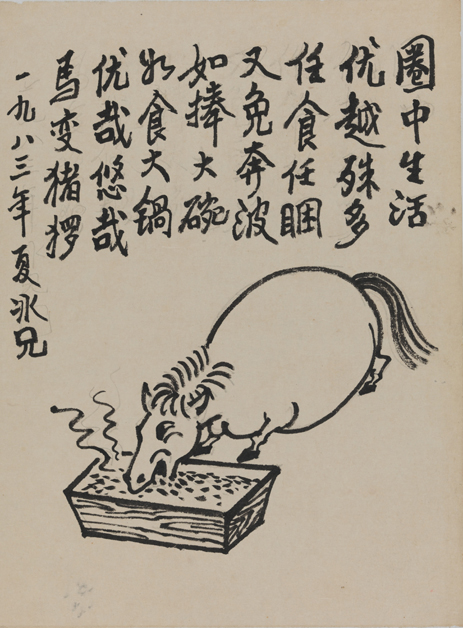 圈中生活
优越殊多
任食任睏
又免奔波
如捧大碗
如食大鍋
优哉悠哉
馬变猪猡
一九八三年夏冰兄